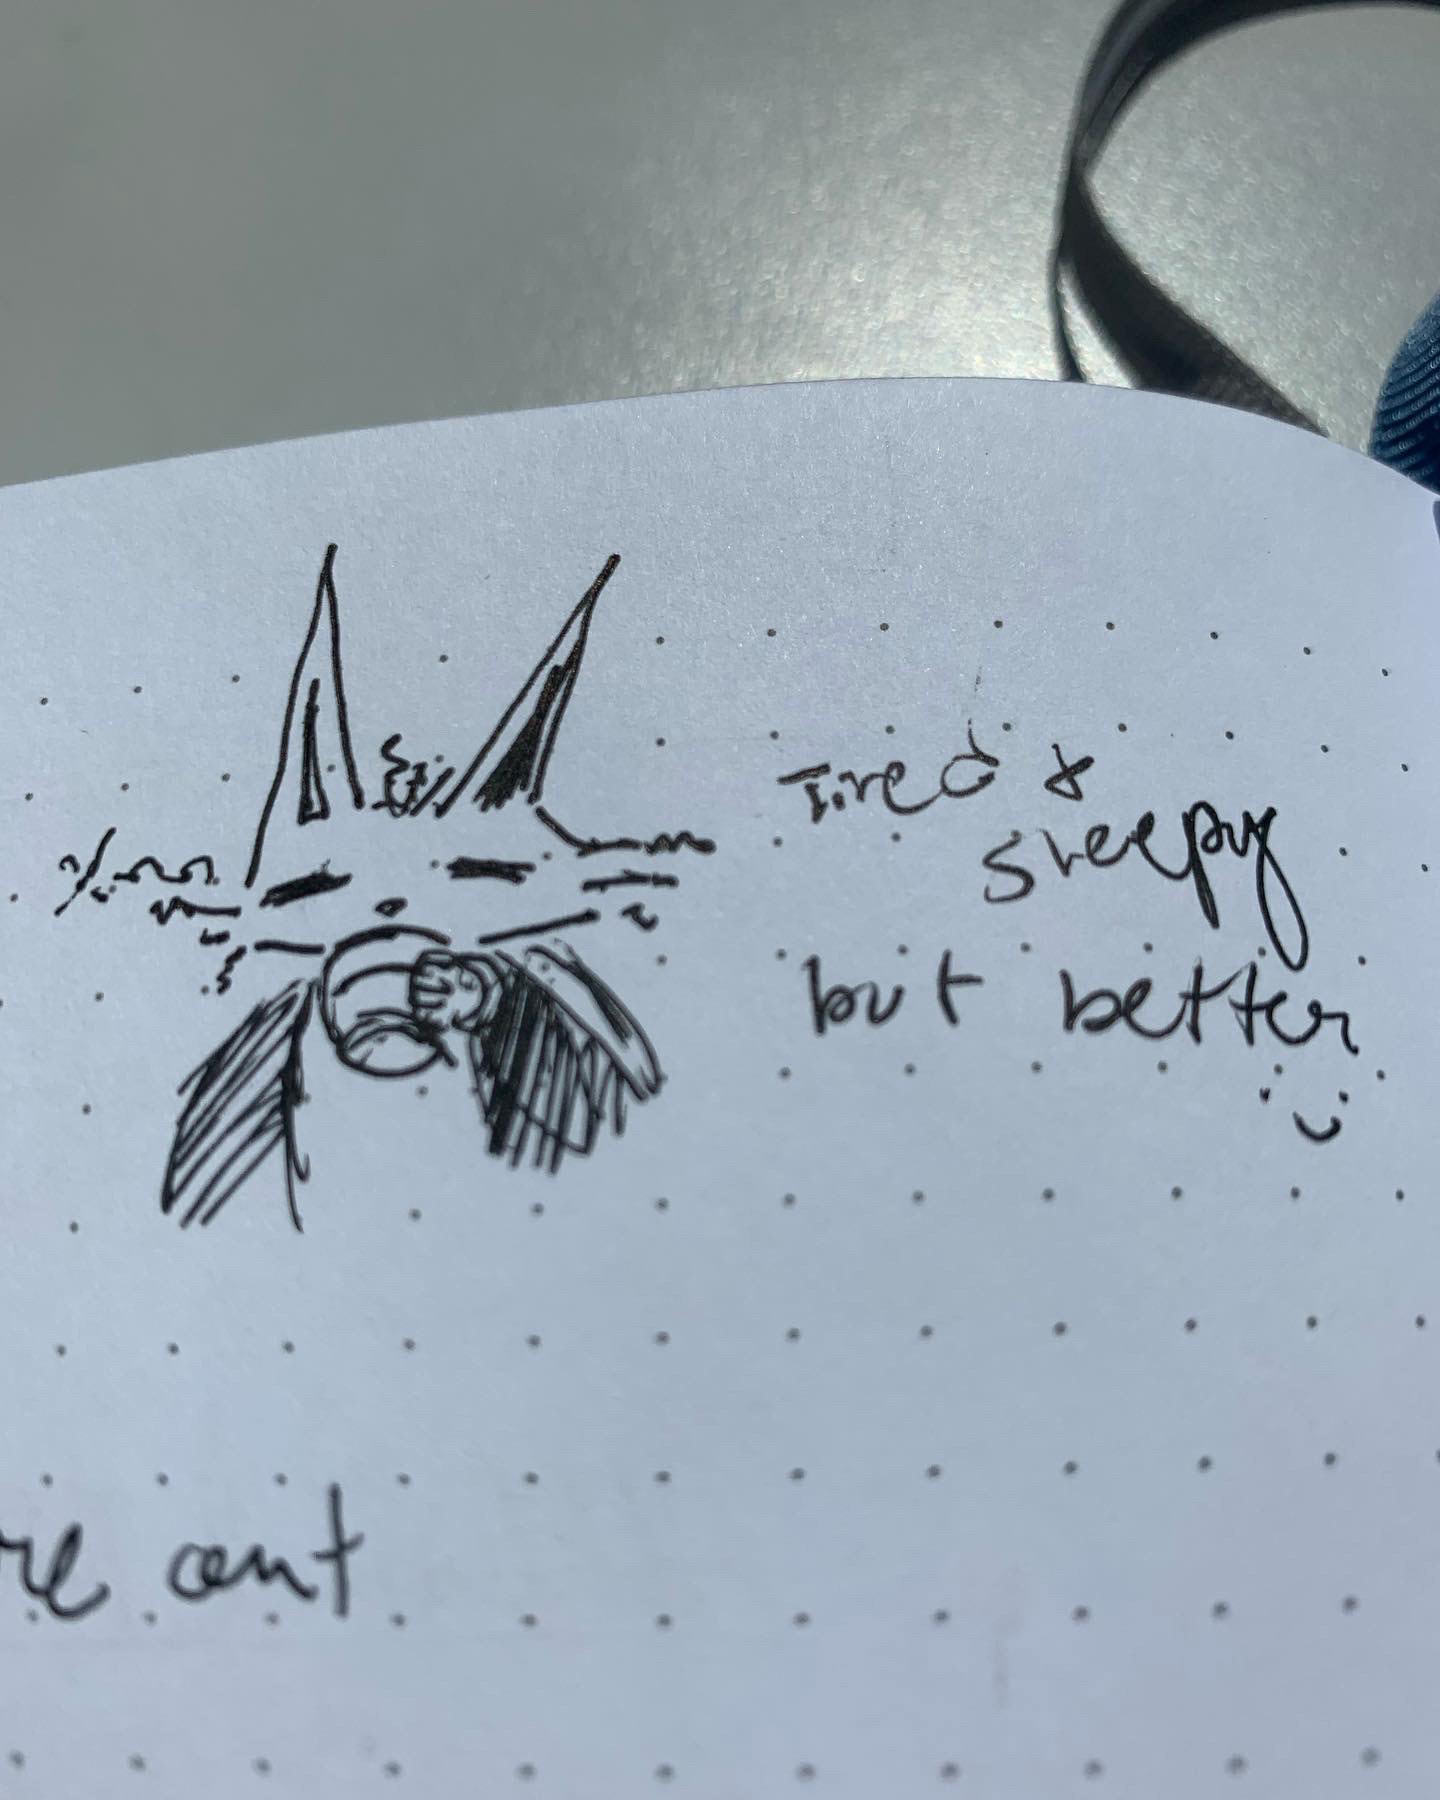 Tired &
sleepy
but better